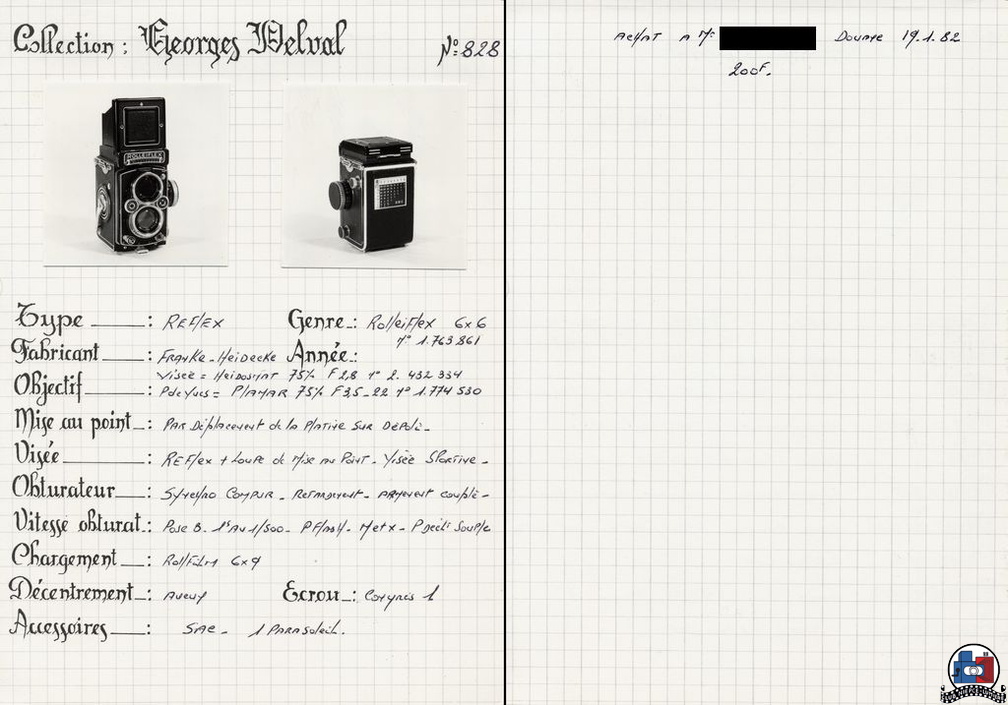 Collection : Georges Delval N° 828
ROLLEIFLEX
Type : REFLEX Genre : Rolleiflex 6x6
N° 1.763861
Fabricant : FRANKE - HEIDECKE Année :
Visée = HEIDOSMAT 75% F 2,8 N° 2. 432 334
Objectif : Pdevues = PLANAR 75% F 3,5 - 22 N° 1.774 530
Mise au point : PAR Déplacement de la PLATINE SUR DEPOLI -
Visée : REFlex + Loupe de Mise au Point - Visée Sportive -
Obturateur : Synchro COMPUR - RETARDEMENT - ARMEMENT couplé -
Vitesse obturat. : Pose B. 1s Au 1/500 - P Flash - M et X - P décl. Souple
Chargement : Roll Film 6x9
Décentrement : Aucun Ecrou : Congrès 1
Accessoires : SAC - 1 PARASOLEIL.
ACHAT A Mr Douane 19.1.82
200F.